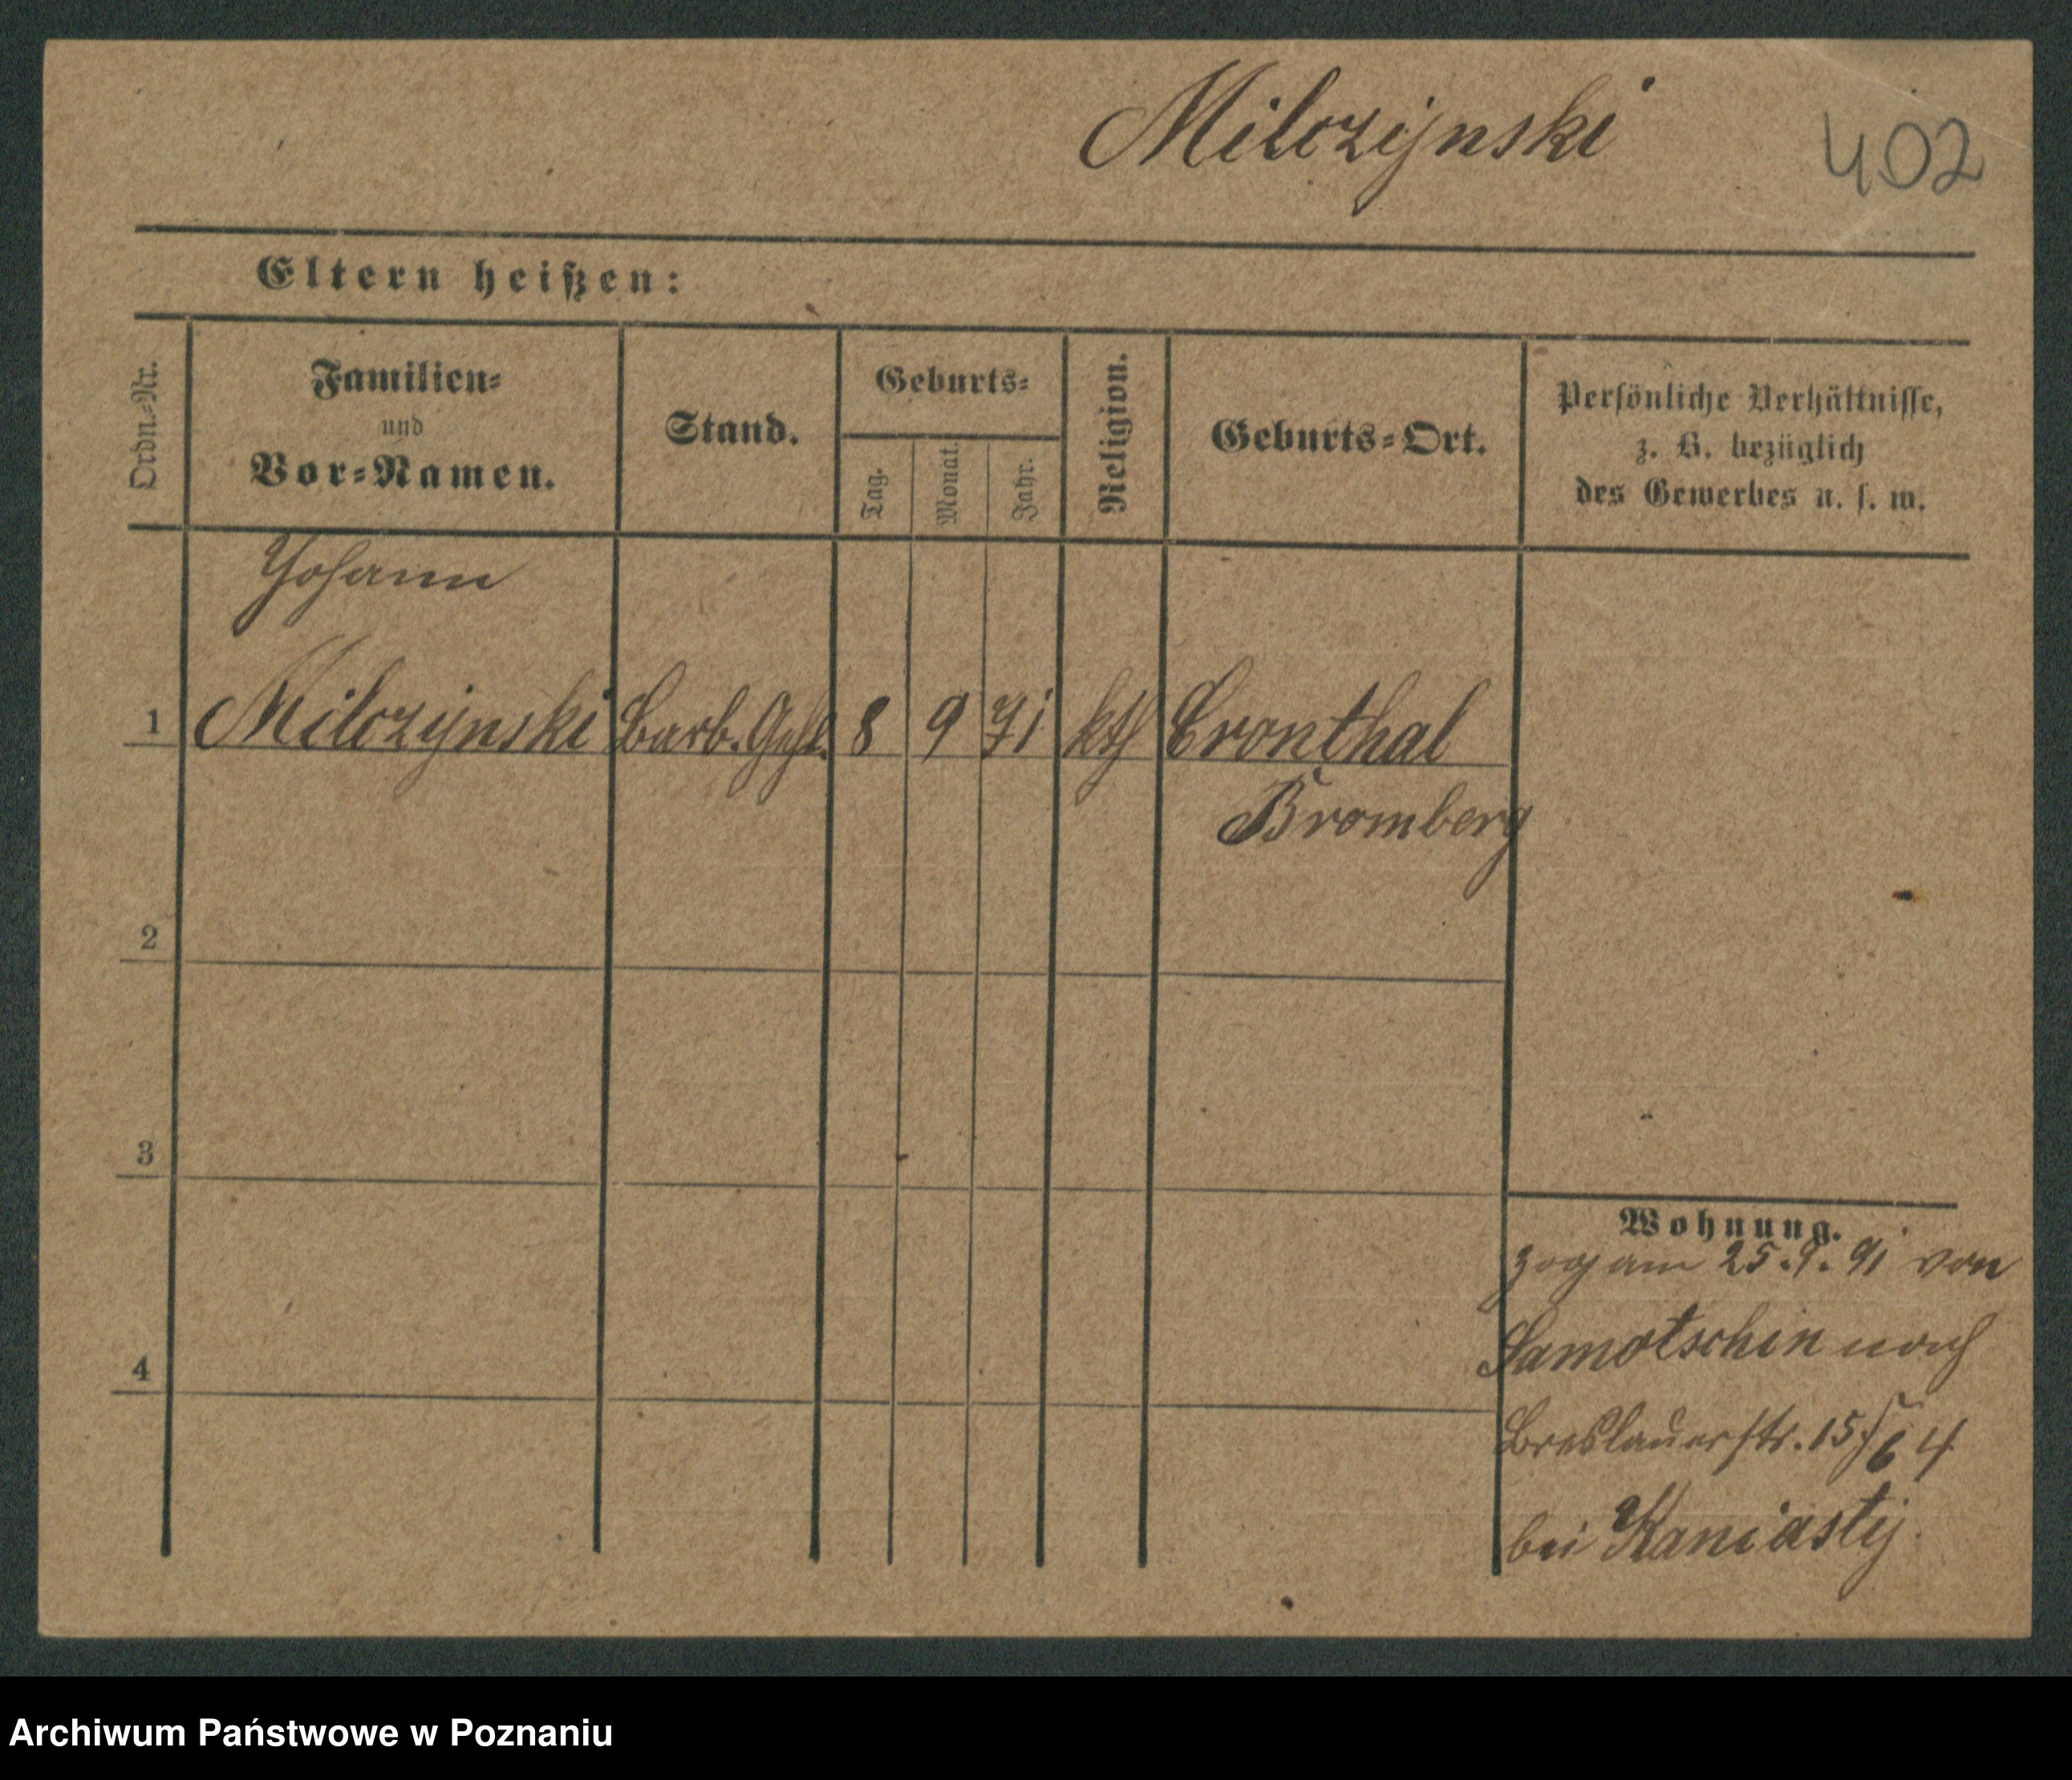 Milczijnski
402
Eltern heißen:
Ordn.-Nr.
Familien-
und
Vor-Namen.
Stand.
Geburts-
Tag.
Monat.
Jahr.
Religion.
Geburts-Ort.
Persönliche Verhältnisse,
z. B. bezüglich
des Gewerbes u. s. w.
Johann
1 Milczijnski Barb. Gehl. 8 9 71 kth Cronthal
Bromberg
2
3
4
Wohnung.
zog am 25.9.91 von
Samotschin nach
Breslauerstr. 15 4
bei Kaniastij
Archiwum Państwowe w Poznaniu